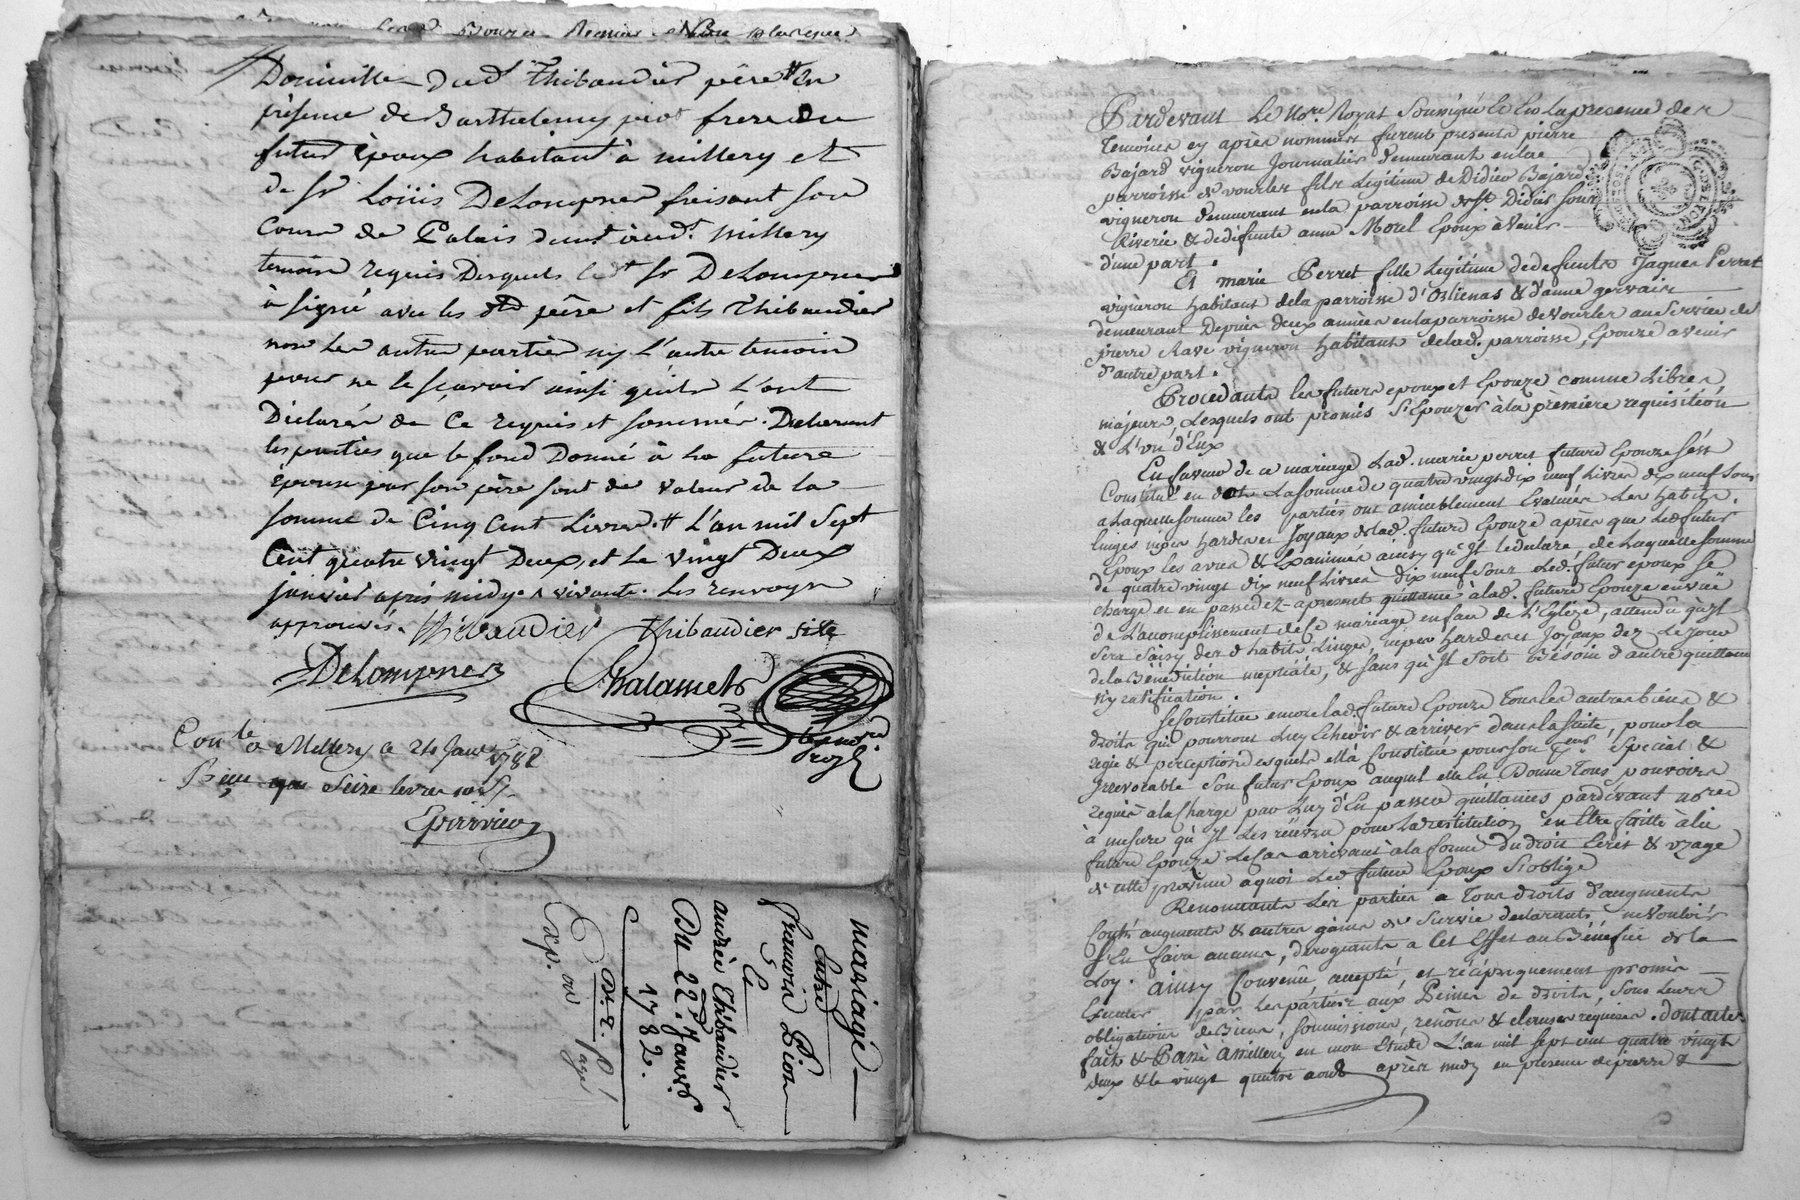 Domicille dud. Thibaudier père # En
présence de Barthelemy piot frere du
futur époux habitant à millery et
de Sr Loüis DeLompnes faisant son
Cours de Palais demt aud. Millery
temoins requis Desquels led. Sr DeLompnes
à signé avec les dts père et fils Thibaudier
non Les autres parties ny L'autre temoin
pour ne le sçavoir ainsi qu'ils L'ont
Déclarés de Ce requis et sommés. Declarant
les parties que le fond Donné à La future
épouse par son père sont de valeur de la
somme de Cinq Cent Livres. # L'an mil Sept
Cent quatre vingt Deux, et Le vingt Deux
janvier après midy. Les renvoys
approuvés. Thibaudier Thibaudier fils
DeLompnes
Chalamel
Conle à Millery ce 24 Janv. 1782
Reçu seize livres
mariage
Entre
francois Pion
Et
andrée Thibaudier
Du 22e. Janvr
1782.
Exp. ou
Pardevant Le Nore. Royal Soussigné & En La presence des
Temoins cy après nommés furent presents pierre
Bajard vigneron Journalier demeurant en la
parroisse de vourles fils Legitime de Didier Bajard
vigneron demeurant en la parroisse de St Didier Sous
Riverie & de deffunte anne Morel Epoux à venir
d'une part.
Et marie Perret fille Legitime de deffunts Jaques Perret
vigneron habitant de la parroisse d'Orlienas & d'anne gervais
demeurant Depuis deux années en la parroisse de Vourles au Service de
pierre Rave vigneron habitant de lad. parroisse, Epouze a venir
d'autre part.
Procedants les futurs epoux et Epouze comme Libres
majeurs, Lesquels ont promis S'Epouzer à la première requisition
& L'un d'Eux
En faveur de ce mariage Lad. marie perret future Epouze S'est
Constitué en dot La somme de quatre vingt dix neuf Livres dix neuf Sous
a Laquelle somme les parties ont amiablement Evalués Les habits.
linges nipes hardes et Joyaux de Lad. future Epouze après que Led. futur
Epoux les a vus & Examinés ainsy qu'Il le declare, de Laquelle somme
de quatre vingt dix neuf Livres dix neuf Sous Led. futur epoux Se
charge et en passe dez-apresent quittance à lad. future Epouze en vüe
de L'acomplissement de Ce mariage en face de L'Eglize, attendu qu'Il
Sera Saisy desd. habits, Linges, nipes hardes et Joyaux dez Le Jour
de la Bénédiction nuptiale, & sans qu'Il Soit Bésoin d'autre quittance
ny ratification.
Se Constitue encore lad. future Epouze Tous les autres biens &
droits qui pourront Luy Echeoir & arriver dans la Suite, pour la
regie & perception desquels elle a Constitué pour son Special &
Irrevocable Son futur Epoux auquel elle En Donne Tous pouvoirs
requis à la Charge par Luy d'En passer quittances pardevant nores
à mesure qu'Il Les recevra pour La restitution en Etre faitte à la
future Epouze Le Cas arrivant à la forme du droit Ecrit & Uzage
de cette province a quoi Led. futur Epoux S'oblige
Renonçants Les parties a Tous droits d'augments
Contr'augments & autres gains de Survie declarants ne Vouloir
S'En faire aucuns, derogeants a cet Effet au Bénéfice de la
Loy. ainsy Convenu, accepté, et réciproquement promis
Executer par Les parties aux Peines de droits, Sous Leurs
obligations de Biens, soumissions, renõns & clauses requises. dont acte
fait & Passé à Millery en mon Etude L'an mil sept cent quatre vingt
deux & le vingt quatre août après midy en presence de pierre &